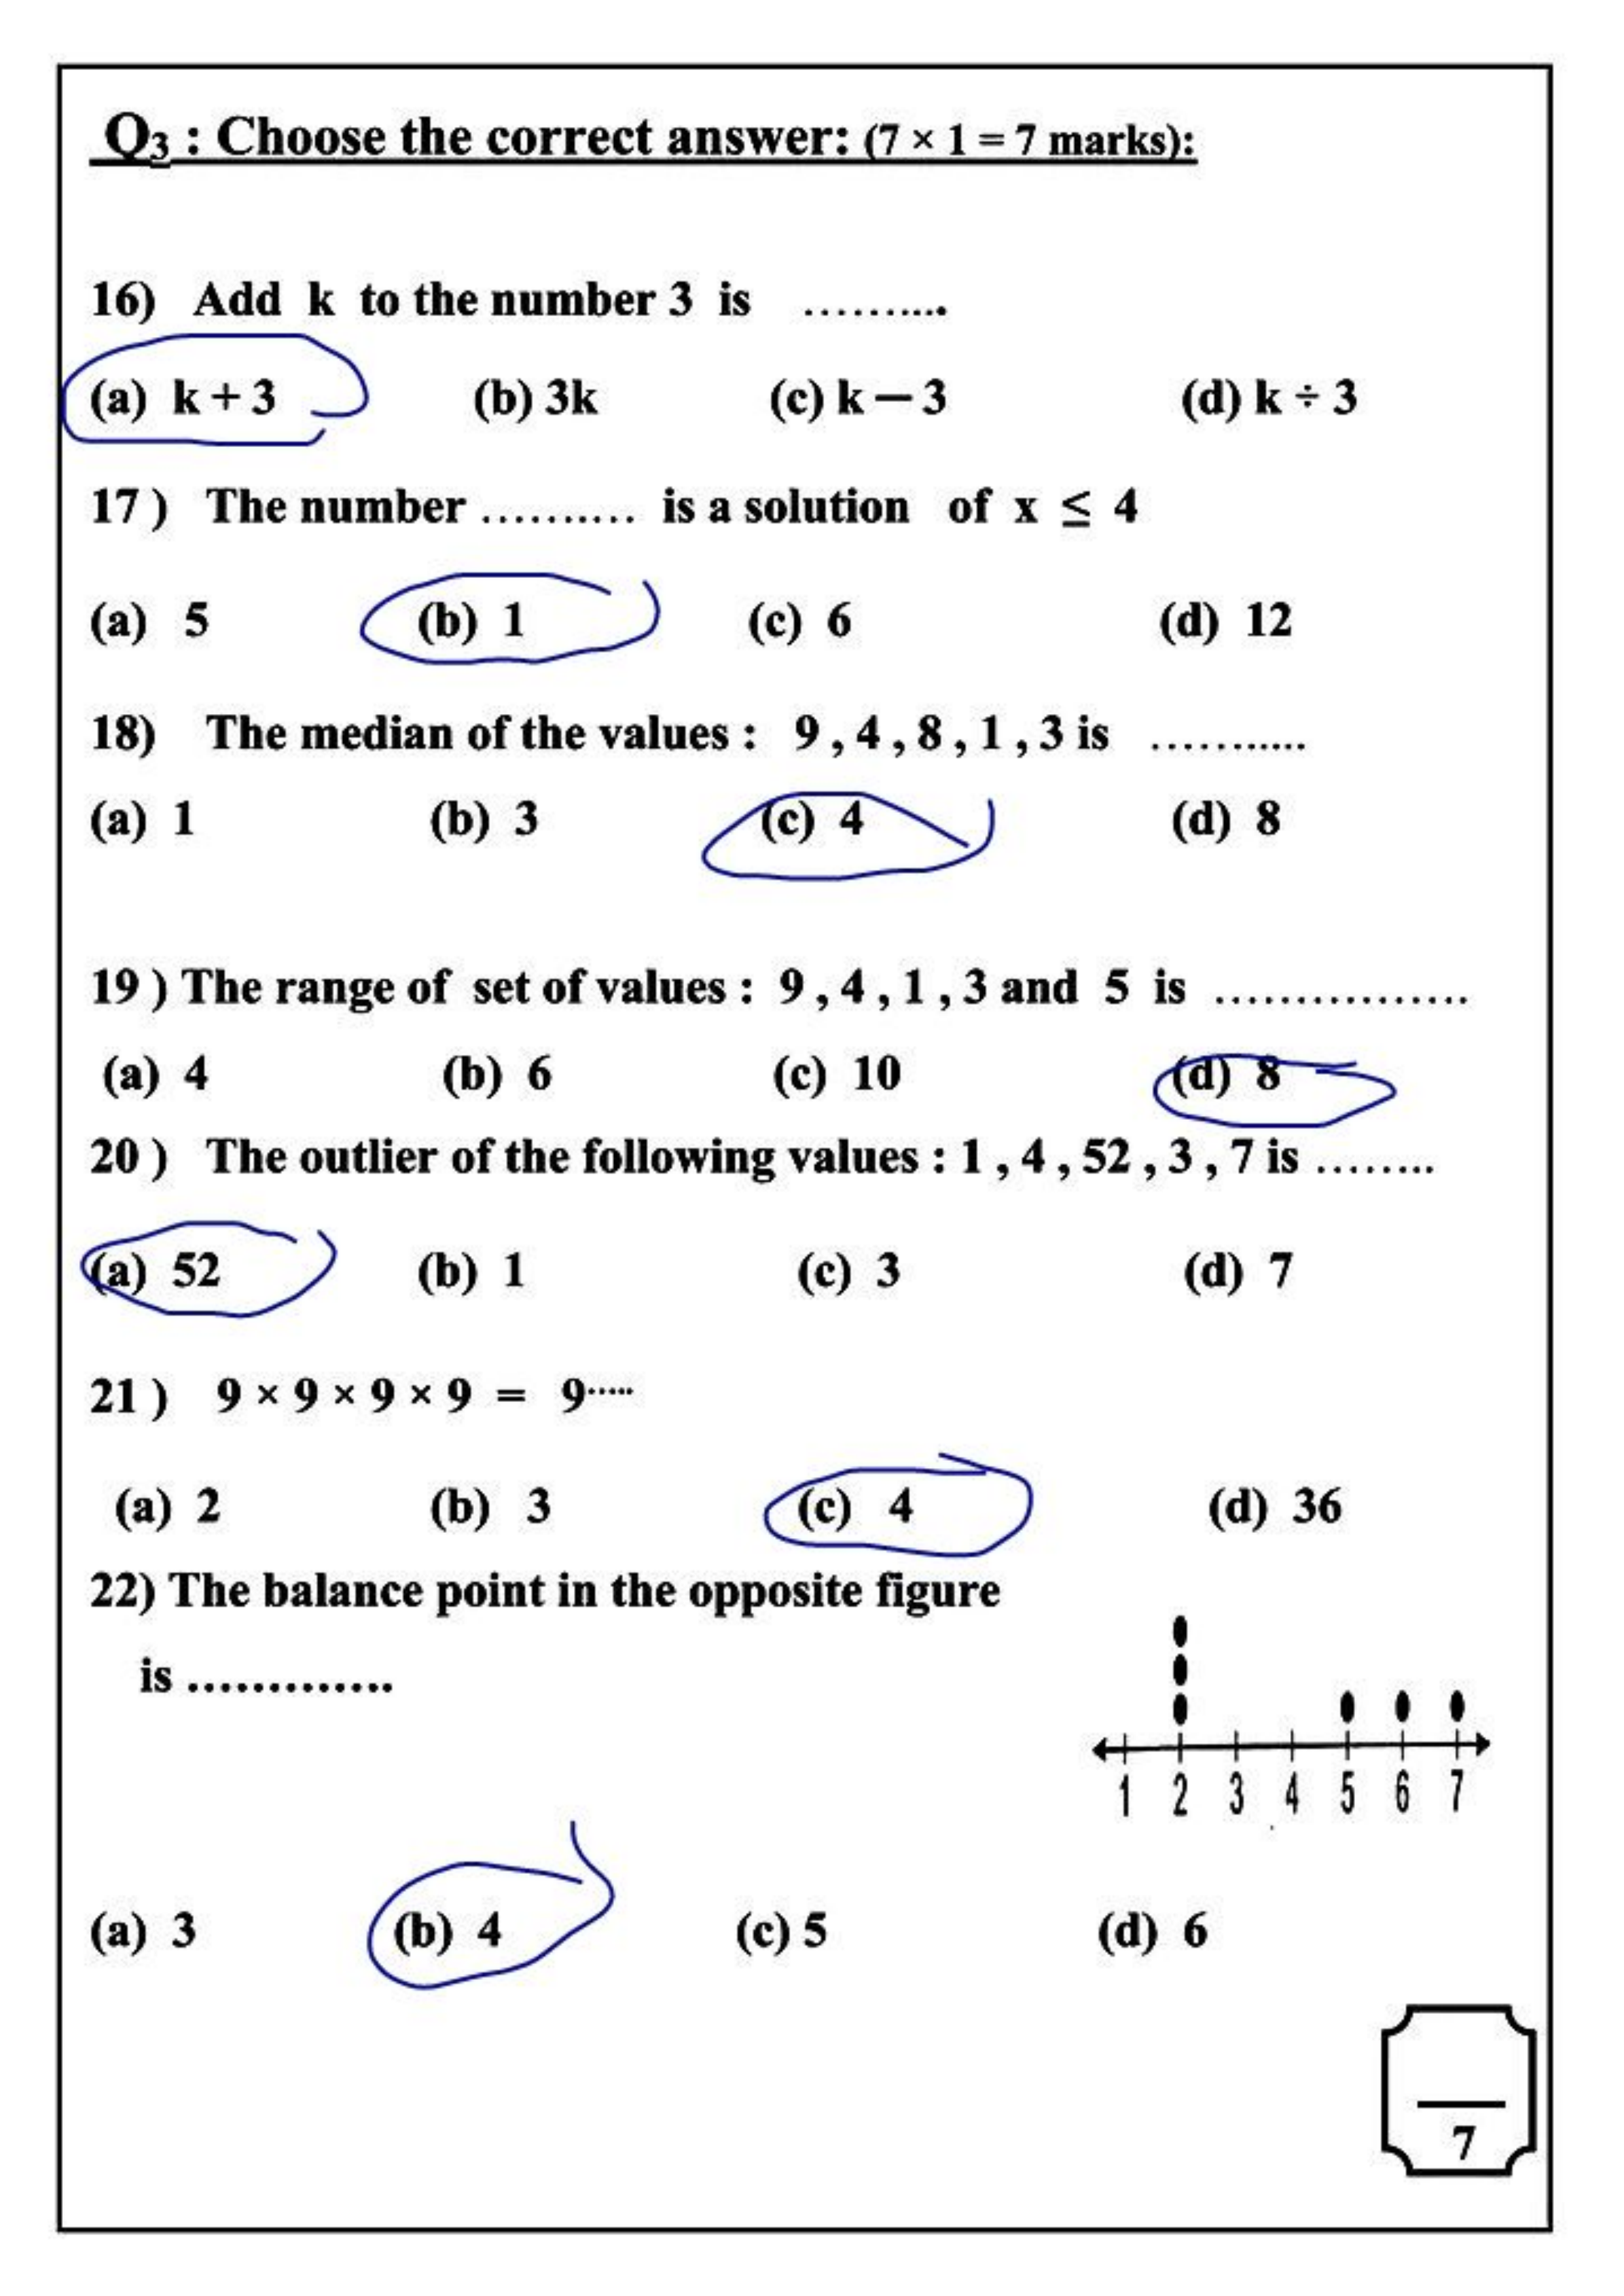 Q3 : Choose the correct answer: (7 × 1 = 7 marks):
16) Add k to the number 3 is ..........
(a) k + 3 (b) 3k (c) k – 3 (d) k ÷ 3
17 ) The number .......... is a solution of x ≤ 4
(a) 5 (b) 1 (c) 6 (d) 12
18) The median of the values : 9 , 4 , 8 , 1 , 3 is ...........
(a) 1 (b) 3 (c) 4 (d) 8
19 ) The range of set of values : 9 , 4 , 1 , 3 and 5 is ................
(a) 4 (b) 6 (c) 10 (d) 8
20 ) The outlier of the following values : 1 , 4 , 52 , 3 , 7 is ........
(a) 52 (b) 1 (c) 3 (d) 7
21 ) 9 × 9 × 9 × 9 = 9.....
(a) 2 (b) 3 (c) 4 (d) 36
22) The balance point in the opposite figure
is .............
1 2 3 4 5 6 7
(a) 3 (b) 4 (c) 5 (d) 6
7